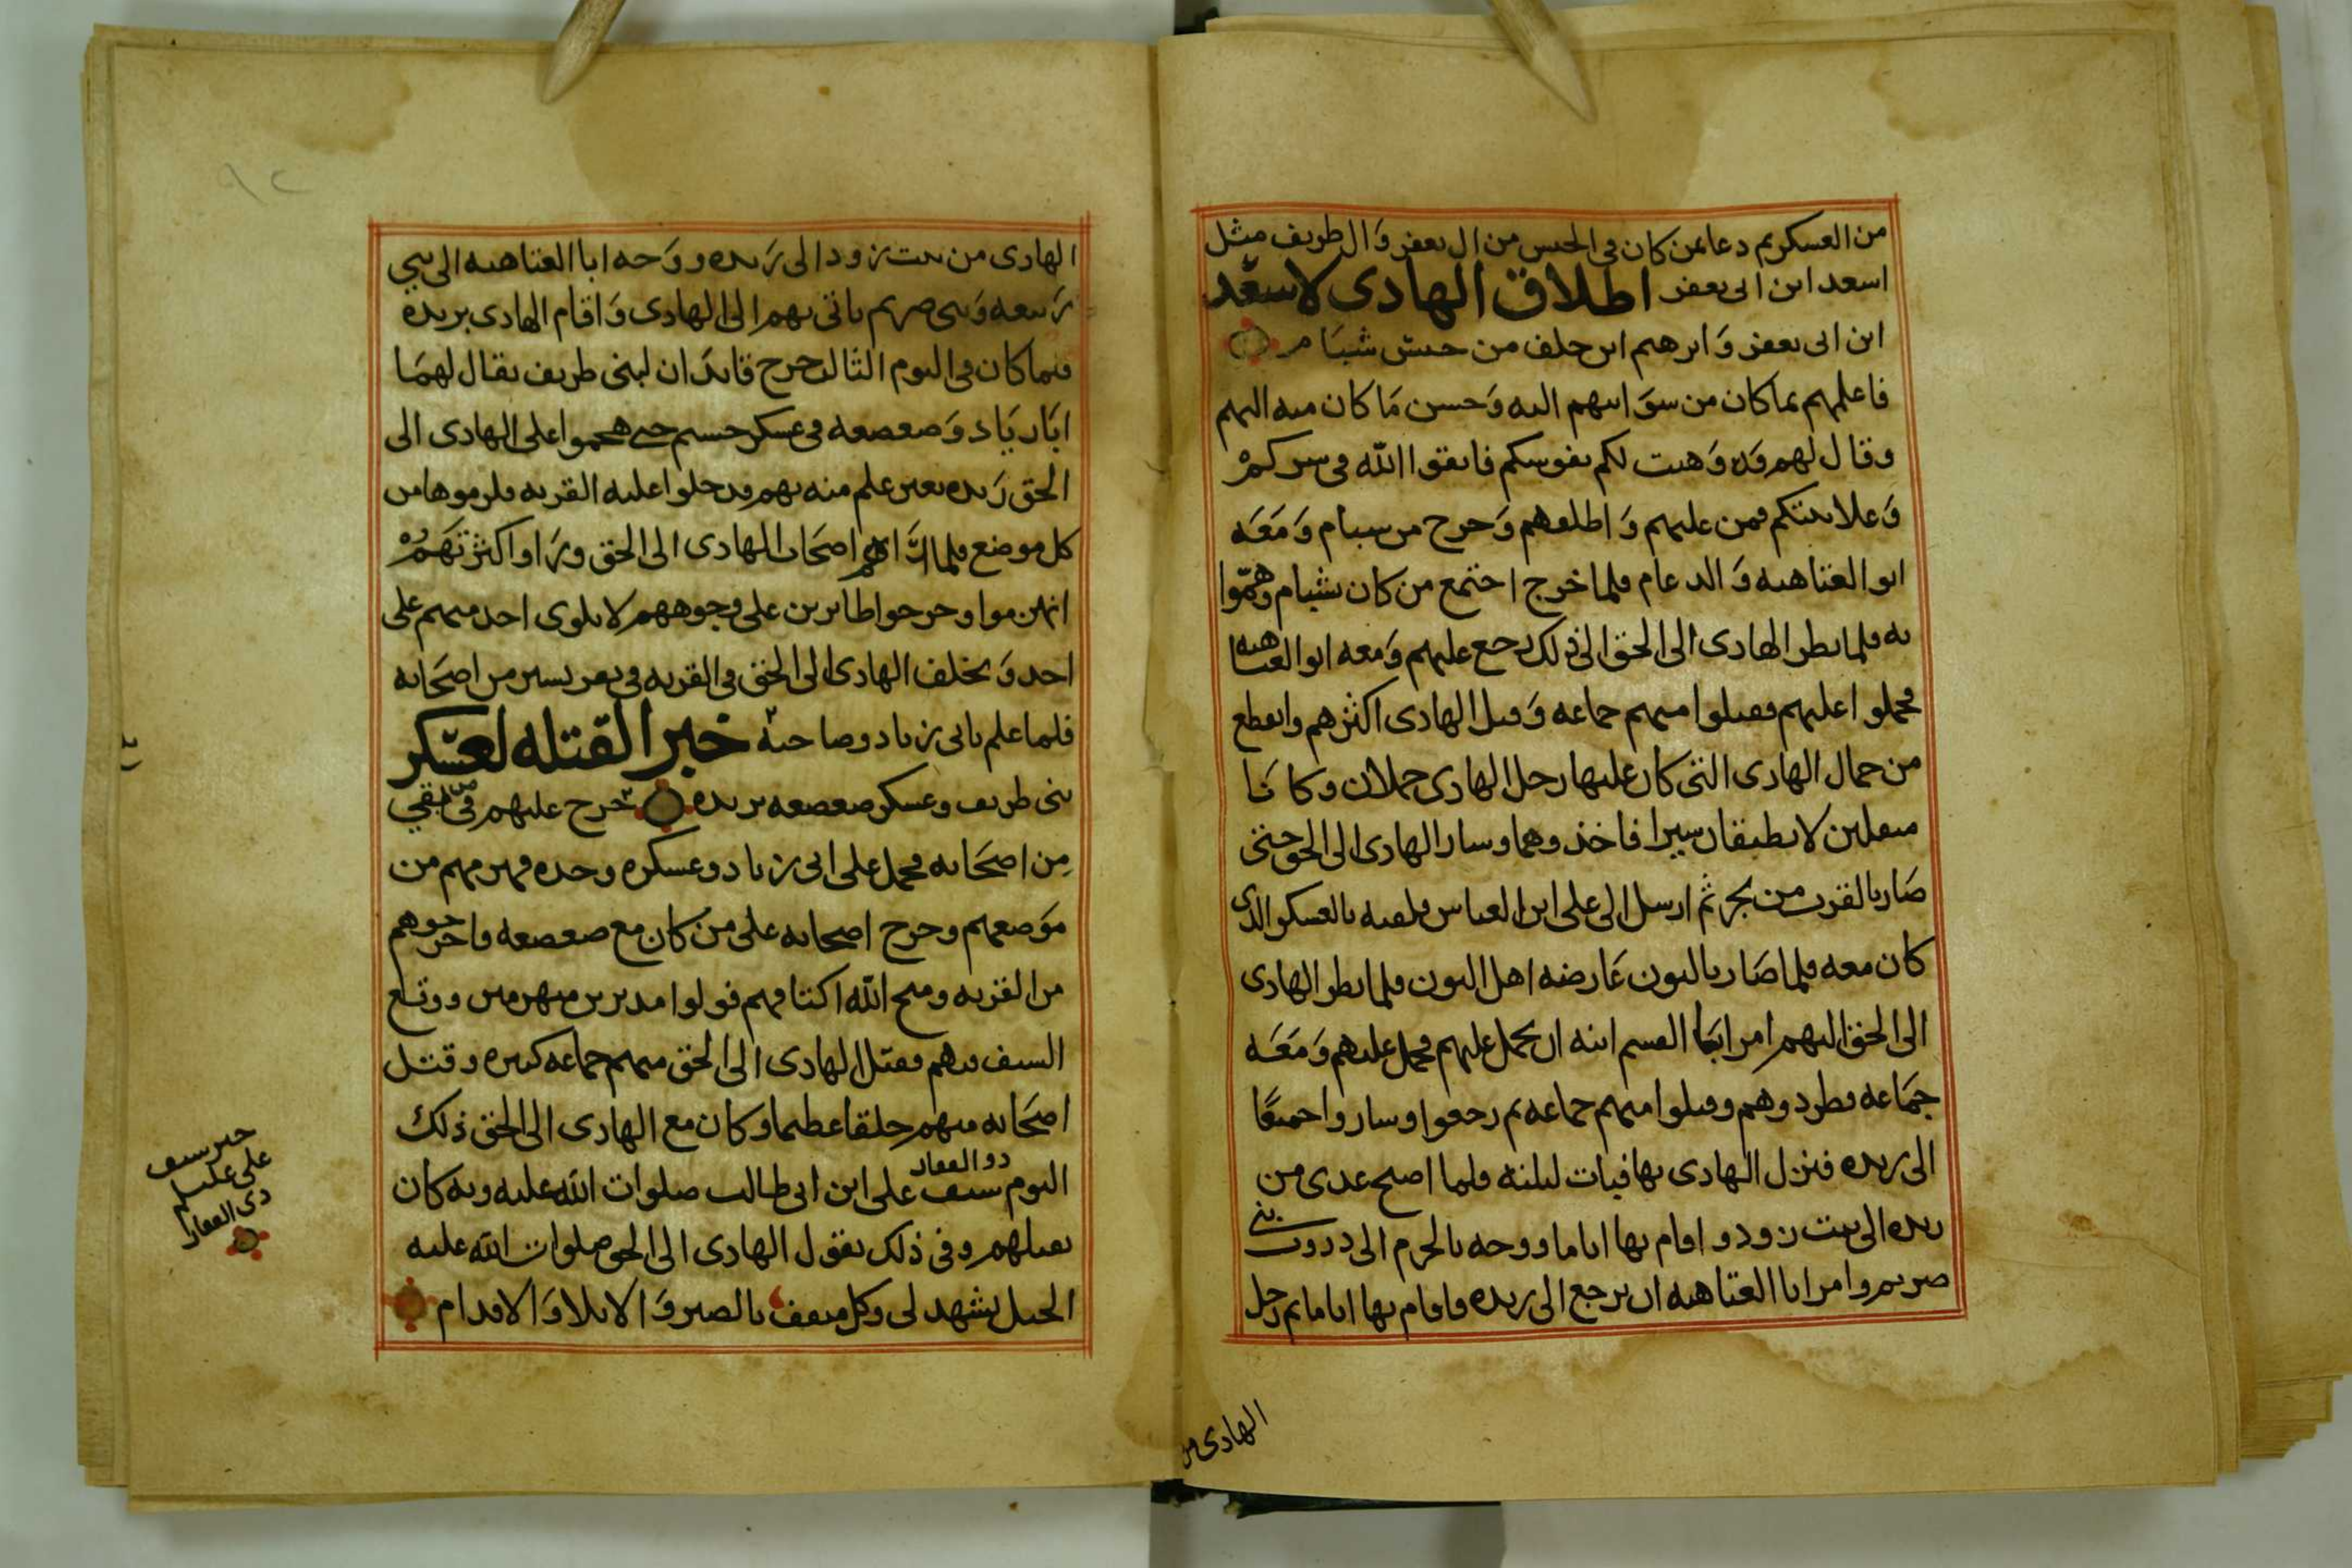 من العسكر ثم دعا بمن كان في الحبس من ال يعفر وَال طريف مثل
اسعد ابن ابى يعفر اطلاق الهادى لاسعد
ابن ابى يعفر وَابرهيم ابن خلف من حبس شبَام
فاعلمهم بما كان من سوَ ايتهم اليه وَحسن مَا كان منه اليهم
وقال لهم قد وَهبت لكم نفوسكم فاتقوا الله فى سركمْ
وَعلانيتكم فمن عليهم وَاطلقهم وَخرج من شبام وَمَعَه
ابو العتاهيه وَالدعام فلما خرج اجتمع من كان بشبام وهمّوا
به فلما نظر الهادى الى الحق الى ذلك رجع عليهم وَمعه ابو العتاهيه
فحملوا عليهم فقتلوا منهم جماعه وَقتل الهادى اكثرهم وانقطع
من جمال الهادى التى كان عليها رحل الهادى جملان وكانَا
مثقلين لا يطيقان سيرا فاخذوهما وسار الهادى الى الحق حتى
صَار بالقرب من ثم ارسل الى على ابن العباس فلقيه بالعسكر الذى
كان معه فلما صَار بالبون عَارضه اهل البون فلما نظر الهادى
الى الحق اليهم امر ابَا القسم ابنه ان يحمل عليهم فحمل عليهم وَمَعَه
جمَاعه فطردوهم وقتلوا منهم جماعه ثم رجعوا وساروا جميعًا
الى ريده فنزل الهادى بها فبات ليلته فلما اصبح غدى من
ريده الى بيت زود و اقام بها اياما ووجه بالحرم الى دروب بنى
صريم وامر ابا العتاهيه ان يرجع الى ريده فاقام بها اياما ثم رحل
الهادى من
الهادى من بيت زود الى رَيده ووَجه ابا العتاهيه الى بنى
رَبيعه وَبنى صريم ياتى بهم الى الهادى وَاقام الهادى بريدة
فلما كان فى اليوم الثالث خرج قايدَان لبنى طريف يقال لهمَا
ابَا زيَاد وَصعصعه فى عسكر جسيم حتى هجموا على الهادى الى
الحق رَيده بغير علم منه بهم ودخلوا عليه القريه فلزموها من
كل موضع فلما رَاهم اصحَاب الهادى الى الحق ورَاوا كثرَتَهَمُ
انهزموا وخرجوا طايرين على وجوههم لا يلوى احد منهم على
احد وَتخلف الهادى الى الحق فى القريه فى نفر يسير من اصحَابه
فلما علم بابى زياد وصاحبه خبر القتله لعسكر
بنى طريف وعسكر صعصعه بريده خرج عليهم فى من بقي
مِن اصحَابه فحمل على ابى زياد وعسكره وحده فهزمهم من
موَضعهم وخرج اصحابه على من كان مع صعصعه فاخرجوهم
من القريه ومنح الله اكتافهم فولوا مدبرين منهزمين ووقع
السيف فيهم فقتل الهادى الى الحق منهم جماعه كبيره وقتل
اصحَابه منهم خلقا عظيما وكان مع الهادى الى الحق ذلك
اليوم سيف ذو الفقار على ابن ابى طالب صلوات الله عليه وبه كان
يقتلهم وفى ذلك يقول الهادى الى الحق صلوات الله عليه
الخيل تشهد لى وكل مثقف بالصبر وَالابلا وَالاقدام
خبر سيف
على عليلم
ذى الفقار
٩٢